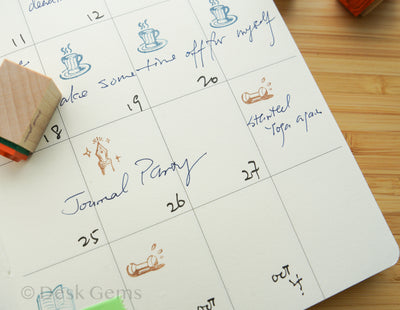 11 12
ake some time off for myself
18 19 20
started
Yoga again
Journal Party
25 26 27
oct oct
© Desk Gems